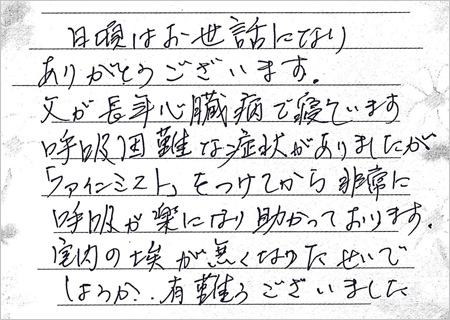 日頃はお世話になり
ありがとうございます。
父が長年心臓病で寝ています
呼吸困難な症状がありましたが
「ファインミスト」をつけてから非常に
呼吸が楽になり助かっております。
室内の埃が無くなりたせいで
しょうか、有難うございました